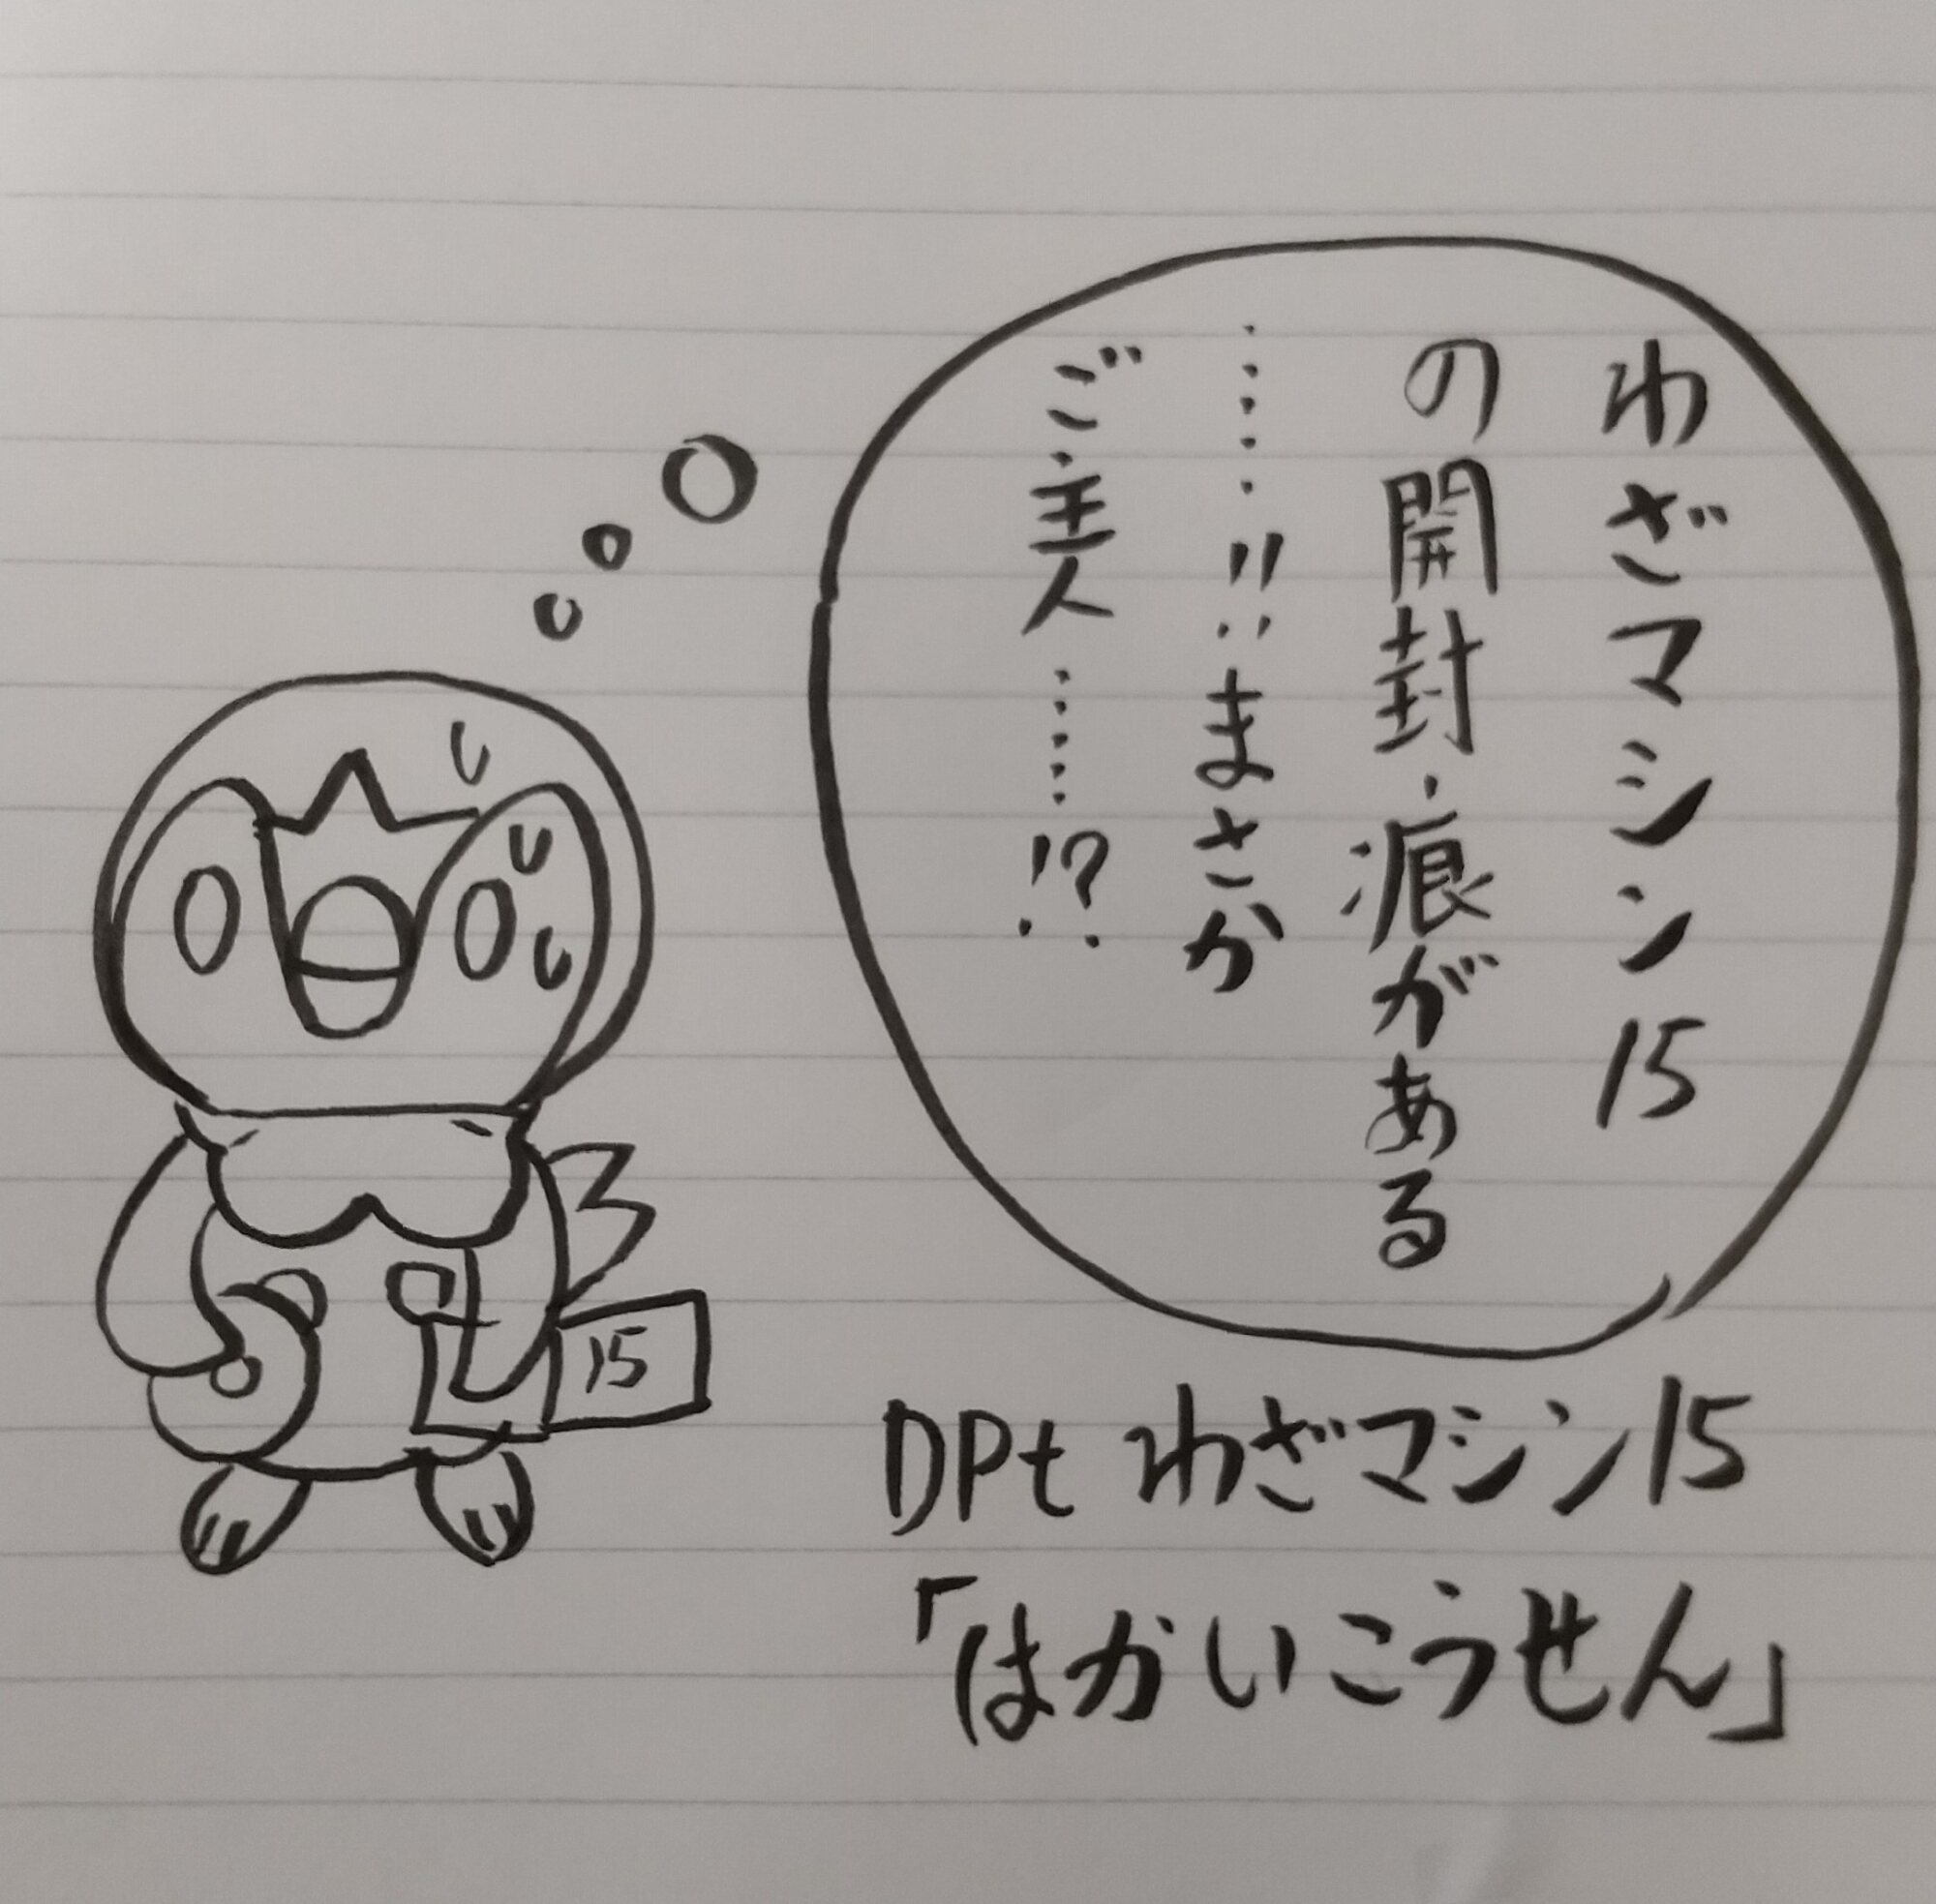 わざマシン15
の開封痕がある
……!!まさか
ご主人……!?
15
DPt わざマシン15
「はかいこうせん」